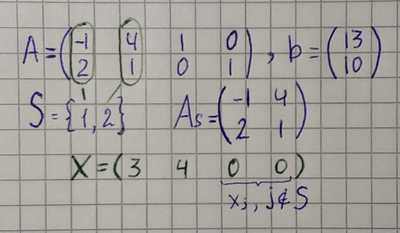 A = (-1 4 1 0) , b = (13)
(2 1 0 1) (10)
S = {1, 2} A_S = (-1 4)
(2 1)
X = (3 4 0 0)
x_j, j∉S